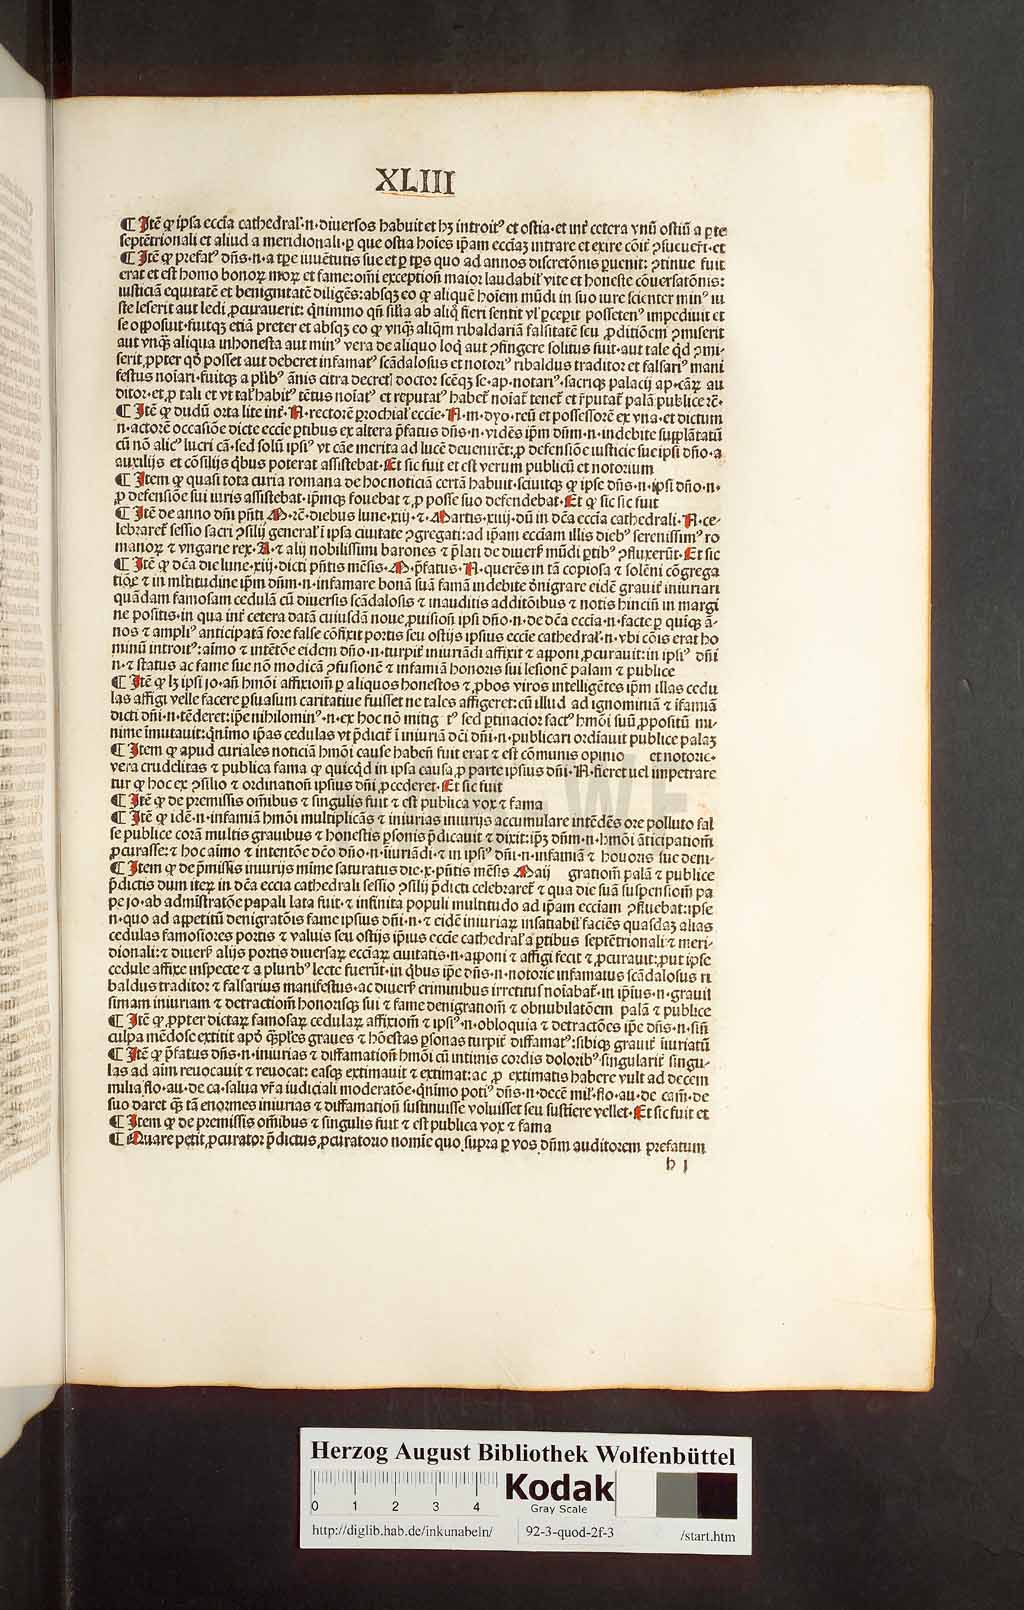 XLIII
¶ Itē ꝙ ipſa eccl̄ia cathedral᷒·n·diuerſos habuit et hꝫ introitꝰ et oſtia·et int̄ cetera vnū oſtiū a ꝑte
ſeptētrionali et aliud a meridionali·ꝑ que oſtia hoīes ip̄am eccl̄iaꝫ intrare et exire cōit̄ ꝯſueuer̄t·et
¶ Itē ꝙ prefatꝰ dn̄s·n·a tp̄e iuuētutis ſue et ꝑ tp̄s quo ad annos diſcretōnis ꝑuenit: ꝯtinue fuit
erat et eſt homo bonoꝝ moꝝ et fame: om̄i exception̄ maior laudabil᷒ vite et honeſte cōuerſatōnis:
iuſticiā equitatē et benignitatē diligēs: abſqꝫ eo ꝙ aliquē hoīem mūdi in ſuo iure ſcienter minꝰ iu
ſte leſerit aut ledi ꝓcurauerit: qn̄immo qn̄ ſilia ab aliq̄ fieri ſentit vl᷒ ꝑcepit poſſetenꝰ impediuit et
ſe oppoſuit·fuitqꝫ etiā preter et abſqꝫ eo ꝙ vnq̄ꝫ aliq̄m ribaldariā falſitatē ſeu ꝓditiōem ꝯmiſerit
aut vnq̄ꝫ aliqua inhoneſta aut minꝰ vera de aliquo loq̄ aut ꝯfingere ſolitus fuit·aut tale q̄d ꝯmi-
ſerit ꝓpter qd̄ poſſet aut deberet infamatꝰ ſcādaloſus et notoriꝰ ribaldus traditor et falſariꝰ mani
feſtus noīari·fuitqꝫ a pl̄ibꝰ ānis citra decret᷒ doctor ſcēqꝫ ſe·ap·notariꝰ·ſacriqꝫ palacij ap·cāꝝ au
ditor·et ꝓ tali et vt tal᷒ habitꝰ tētus noīatꝰ et reputatꝰ habet᷒ noīat᷒ tenet᷒ et r̄putat᷒ palā publice rē·
¶ Itē ꝙ dudū orta lite int̄·N·rectorē ꝑrochial᷒ eccl̄ie·N·m·dyo·reū et poſſeſſorē ex vna·et dictum
n·actorē occaſiōe dicte eccl̄ie ꝑtibus ex altera p̄fatus dn̄s·n·vidēs ip̄m dn̄m·n·indebite ſupplātatū
cū nō alicꝰ lucri cā·ſed ſolū ipſiꝰ vt cāe merita ad lucē deuenirēt: ꝓ defenſiōe iuſticie ſue ipſi dn̄o·a
auxilijs et cōſilijs q̄bus poterat aſſiſtebat·Et ſic fuit et eſt verum publicū et notorium
¶ Item ꝙ quaſi tota curia romana de hoc noticiā certā habuit·ſciuitqꝫ ꝙ ipſe dn̄s·n·ipſi dn̄o·n·
ꝓ defenſiōe ſui iuris aſſiſtebat·ip̄mqꝫ fouebat ⁊ ꝓ poſſe ſuo defendebat·Et ꝙ ſic ſic fuit
¶ Itē de anno dn̄i pn̄ti M·rē·diebus lune·xiij·⁊·Martis·xiiij·dū in dc̄a eccl̄ia cathedrali·N·ce-
lebraret᷒ ſeſſio ſacri ꝯſilij general᷒ i ipſa ciuitate ꝯgregati: ad ip̄am eccl̄iam illis diebꝰ ſereniſſimꝰ ro
manoꝝ ⁊ vngarie rex·A·⁊ alij nobiliſſimi barones ⁊ p̄lati de diuerſ᷒ mūdi ꝑtibꝰ ꝯfluxerūt·Et ſic
¶ Itē ꝙ dc̄a die lune·xiij·dicti pn̄tis mēſis·M·p̄fatus·N·querēs in tā copioſa ⁊ ſolēni cōgrega
tiōe ⁊ in ml̄titudine ip̄m dn̄m·n·infamare bonā ſuā famā indebite d̄nigrare eidē grauit̄ iniuriari
quādam famoſam cedulā cū diuerſis ſcādaloſis ⁊ inauditis additōibus ⁊ notis hincin̄ in margi
ne poſitis·in qua int̄ cetera datā cuiuſdā noue ꝓuiſion̄ ipſi dn̄o·n·de dc̄a eccl̄ia·n·facte ꝑ quīqꝫ ā-
nos ⁊ ampliꝰ anticipatā fore falſe cōfīxit portis ſeu oſtijs ipſius eccl̄ie cathedral᷒·n·vbi cōis erat ho
minū introitꝰ: aīmo ⁊ intētōe eidem dn̄o·n·turpit̄ iniuriādi affixit ⁊ apponi ꝓcurauit: in ipſiꝰ dn̄i
n·⁊ ſtatus ac fame ſue nō modicā ꝯfuſionē ⁊ infamiā honoris ſui leſionē palam ⁊ publice
¶ Itē ꝙ lꝫ ipſi jo·an̄ hmōi affixiom̄ ꝑ aliquos honeſtos ⁊ ꝓbos viros intelligētes ip̄m illas cedu
las affigi velle facere ꝑſuaſum caritatiue fuiſſet ne tales affigeret: cū illud ad ignominiā ⁊ īfamiā
dicti dn̄i·n·tēderet: ip̄e nihilominꝰ·n·ex hoc nō mitig tꝰ ſed ꝑtinacior factꝰ hmōi ſuū ꝓpoſitū mi-
nime īmutauit: qn̄imo ip̄as cedulas vt p̄dicit᷒ ī iniuriā dc̄i dn̄i·n·publicari ordīauit publice palaꝫ
¶ Item ꝙ apud curiales noticiā hmōi cauſe haben̄ fuit erat ⁊ eſt cōmunis opinio et notorie·
vera crudelitas ⁊ publica fama ꝙ quicq̄d in ipſa cauſa ꝓ parte ipſius dn̄i·N·fieret uel impetrare
tur ꝙ hoc ex ꝯſilio ⁊ ordination̄ ipſius dn̄i ꝓcederet·Et ſic fuit
¶ Itē ꝙ de premiſſis om̄ibus ⁊ ſingulis fuit ⁊ eſt publica vox ⁊ fama
¶ Itē ꝙ idē·n·infamiā hmōi multiplicās ⁊ iniurias iniurijs accumulare intēdēs ore polluto fal
ſe publice corā multis grauibus ⁊ honeſtis ꝑſonis p̄dicauit ⁊ dixit: ip̄ꝫ dn̄m·n·hmōi āticipatiom̄
ꝓcuraſſe: ⁊ hoc aīmo ⁊ intentōe dc̄o dn̄o·n·īiuriādi·⁊ in ipſiꝰ dn̄i·n·infamiā ⁊ honoris ſue deni-
¶ Item ꝙ de p̄miſſis iniurijs mīme ſaturatus die·x·pn̄tis mēſis Maij gratiom̄ palā ⁊ publice
p̄dictis dum iteꝝ in dc̄a eccl̄ia cathedrali ſeſſio ꝯſilij p̄dicti celebraret᷒ ⁊ qua die ſuā ſuſpenſiom̄ pa
pe jo·ab admiſtratōe papali lata fuit·⁊ infinita populi multitudo ad ip̄am eccl̄iam ꝯfluebat: ipſe
n·quo ad appetitū denigratōis fame ipſius dn̄i·n·⁊ eidē iniuriaꝝ inſatiabil᷒ faciēs quaſdaꝫ alias
cedulas famoſiores portis ⁊ valuis ſeu oſtijs ip̄ius eccl̄ie cathedral᷒ a ꝑtibus ſeptētrionali ⁊ meri-
dionali: ⁊ diuerſ᷒ alijs portis diuerſaꝝ eccl̄iaꝝ ciuitatis·n·apponi ⁊ affigi fecit ⁊ ꝓcurauit: ꝓut ipſe
cedule affixe inſpecte ⁊ a pluribꝰ lecte fuerūt·in q̄bus ip̄e dn̄s·n·notorie infamatus ſcādaloſus ri
baldus traditor ⁊ falſarius manifeſtus·ac diuerſ᷒ criminibus irretitus noīabat᷒·in ip̄ius·n·grauiſ
ſimam iniuriam ⁊ detractiom̄ honoriſqꝫ ſui ⁊ fame denigratiom̄ ⁊ obnubilatōem palā ⁊ publice
¶ Itē ꝙ ꝓpter dictaꝝ famoſaꝝ cedulaꝝ affixiom̄ ⁊ ipſiꝰ·n·obloquia ⁊ detractōes ip̄e dn̄s·n·ſin̄
culpa mēdoſe extitit apd̄ q̄ꝫples graues ⁊ hōeſtas ꝑſonas turpit̄ diffamatꝰ: ſibiqꝫ grauit̄ īiuriatū
¶ Itē ꝙ p̄fatus dn̄s·n·iniurias ⁊ diffamation̄ hmōi cū intimis cordis doloribꝰ·ſingularit̄ ſingu-
las ad aīm reuocauit ⁊ reuocat: eaſqꝫ extimauit ⁊ extimat: ac ꝓ extimatis habere vult ad decem
milia flo·au·de ca·ſalua vr̄a iudiciali moderatōe·qn̄imo potiꝰ dn̄s·n·decē mil᷒·flo·au·de cam̄·de
ſuo daret q̄ꝫ tā enormes iniurias ⁊ diffamation̄ ſuſtinuiſſe voluiſſet ſeu ſuſtīere vellet·Et ſic fuit et
¶ Item ꝙ de premiſſis om̄ibus ⁊ ſingulis fuit ⁊ eſt publica vox ⁊ fama
¶ Quare petit ꝓcurator p̄dictus ꝓcuratorio nomīe quo ſupra ꝑ vos dn̄m auditorem prefatum
h j
Herzog August Bibliothek Wolfenbüttel
0 1 2 3 4
Kodak
Gray Scale
http://diglib.hab.de/inkunabeln/ 92-3-quod-2f-3 /start.htm